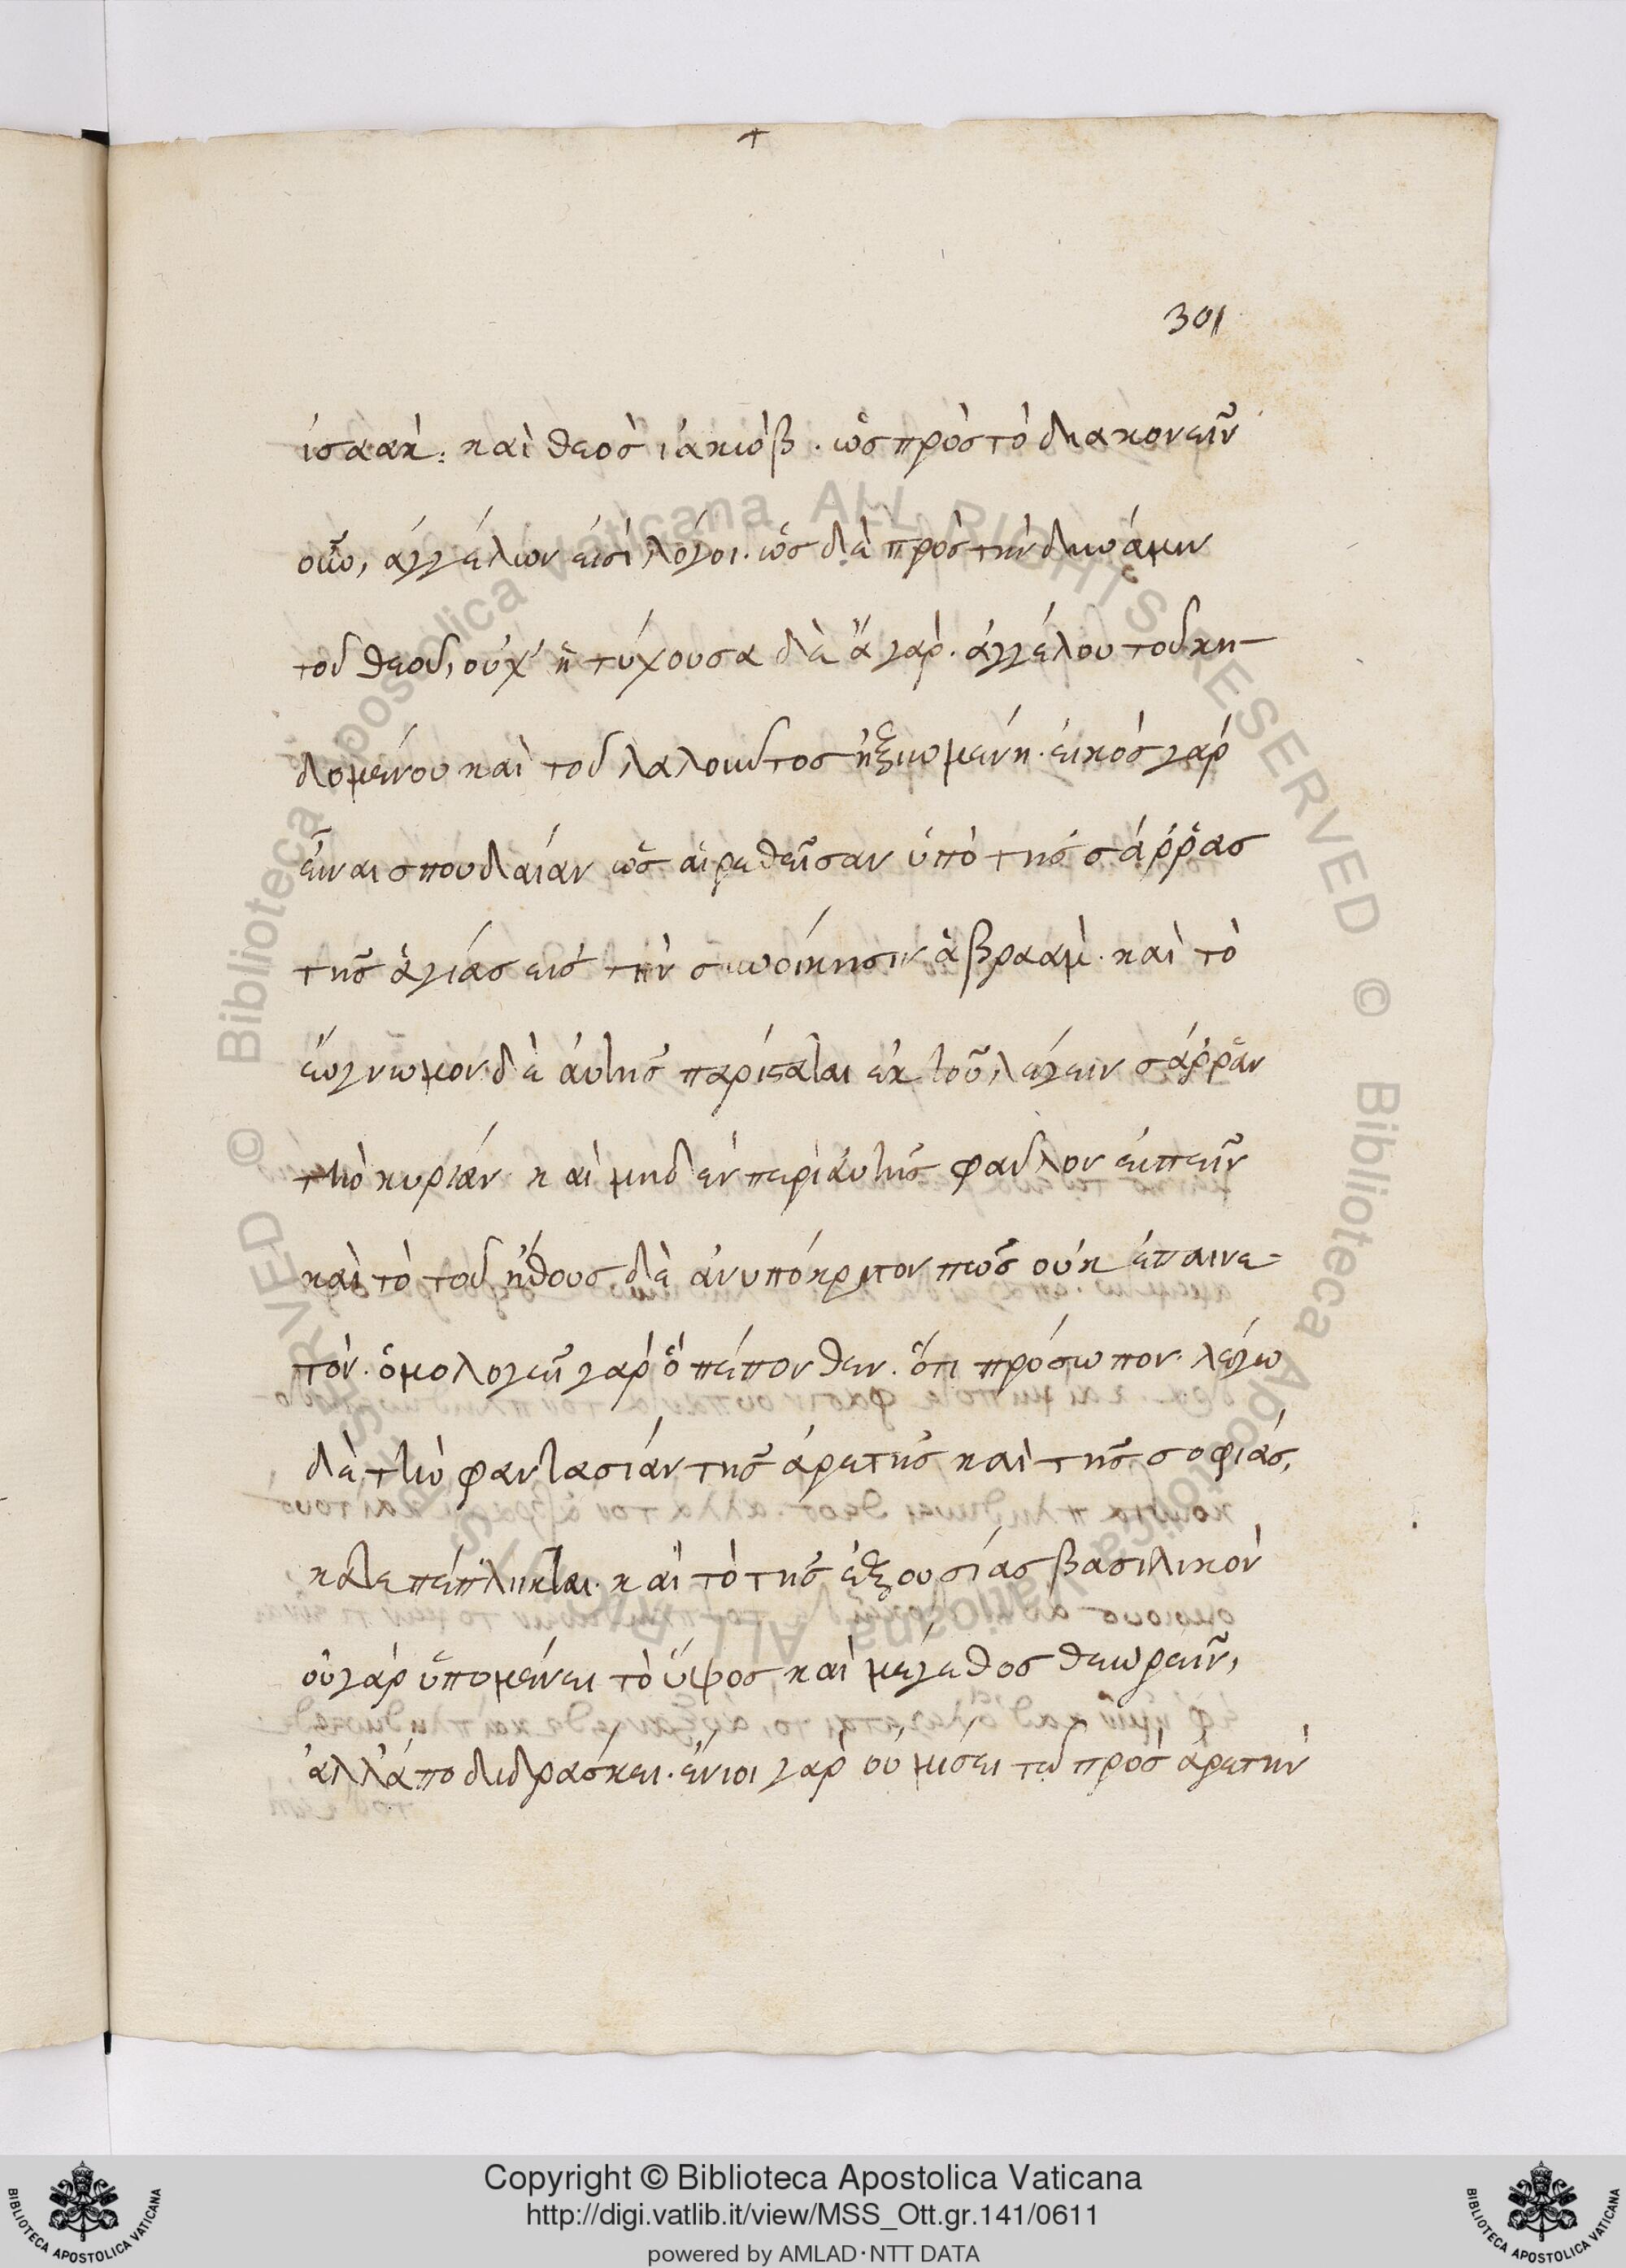 301
ἰσαακ· καὶ θεὸς ἰακώβ. ὡς πρὸς τὸ διακονεῖν
οὖν, ἀγγέλων εἰσὶ λόγοι. ὡς δὲ πρὸς τὴν δύναμιν
τοῦ θεοῦ, οὐχ' ἡ τύχουσα δὲ ἄγαρ. ἀγγέλου τοῦ κη-
δομένου καὶ τοῦ λαλοῦντος ἠξιωμένη. εἰκὸς γὰρ
εἶναι σπουδαίαν ὡς αἱρεθεῖσαν ὑπὸ τῆς σάῤῥας
τῆς ἁγίας εἰς τὴν συνοίκησιν ἀβραάμ. καὶ τὸ
εὔγνωμον δὲ αὐτῆς παρίσταται ἐκ τοῦ λέγειν σάῤῥαν
τὴν κυρίαν καὶ μηδὲν περὶ αὐτῆς φαῦλον εἰπεῖν
καὶ τὸ τοῦ ἤθους δὲ ἀνυπόκριτον πῶς οὐκ ἐπαινε-
τόν. ὁμολογεῖ γὰρ ὃ πέπονθεν. ὅτι πρόσωπον. λέγω
δὲ, τὴν φαντασίαν τῆς ἀρετῆς καὶ τῆς σοφίας,
καταπέπληκται. καὶ τὸ τῆς ἐξουσίας βασιλικὸν
οὐ γὰρ ὑπομένει τὸ ὕψος καὶ μέγεθος θεωρεῖν,
ἀλλ' ἀποδιδράσκει. ἔνιοι γὰρ οὐ μίσει τῷ πρὸς ἀρετὴν
© Biblioteca Apostolica Vaticana ALL RIGHTS RESERVED © Biblioteca Apostolica Vaticana ALL RIGHTS RESERVED
Copyright © Biblioteca Apostolica Vaticana
http://digi.vatlib.it/view/MSS_Ott.gr.141/0611
powered by AMLAD·NTT DATA
BIBLIOTECA APOSTOLICA VATICANA
BIBLIOTECA APOSTOLICA VATICANA